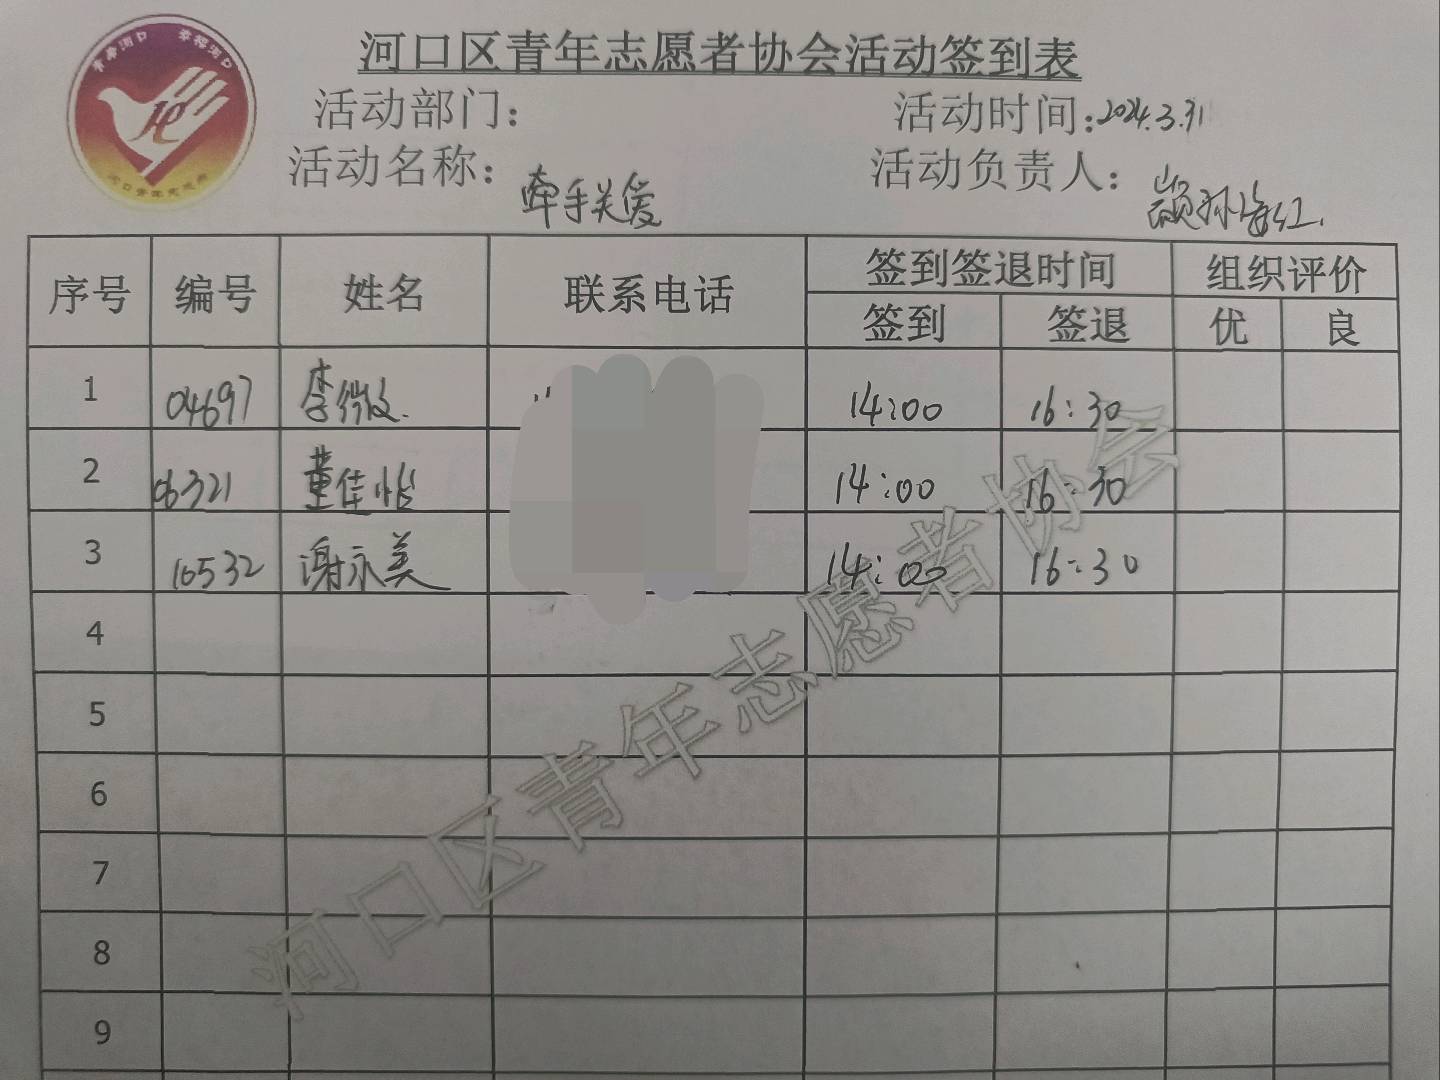 青春河口 幸福河口
河口区青年志愿者协会活动签到表
活动部门： 活动时间：2024.3.31
活动名称：牵手关爱 活动负责人：颛孙海红
序号 编号 姓名 联系电话 签到签退时间 组织评价
签到 签退 优 良
1 04697 李微文 14:00 16:30
2 06321 董佳怡 14:00 16:30
3 10532 谢永美 14:00 16:30
4
5
6
7
8
9
河口区青年志愿者协会